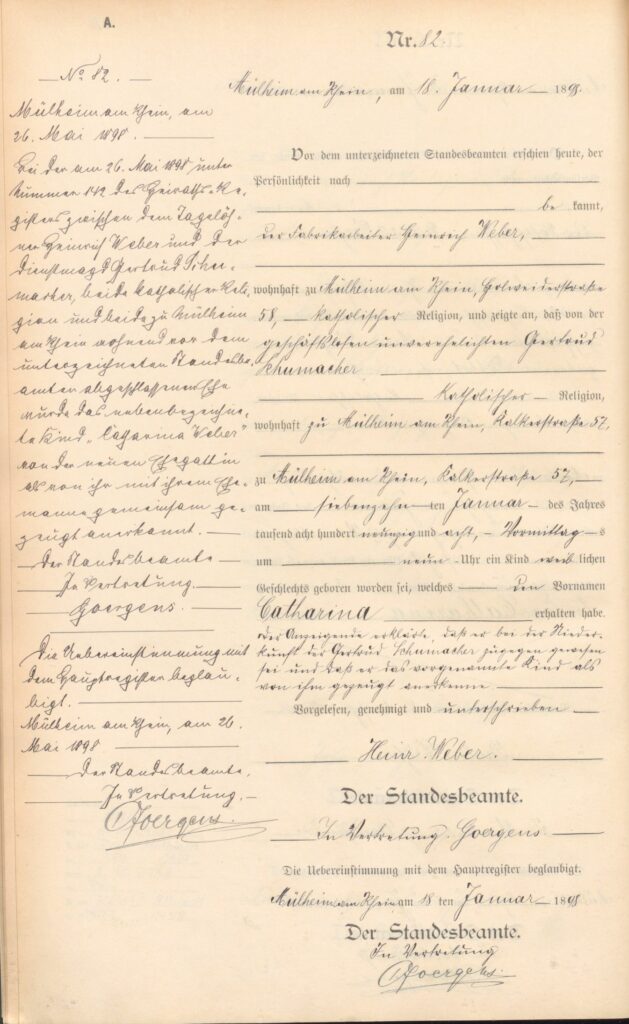 A.
Nr. 82.
No 82.
Mülheim am Rhein, am
26. Mai 1898.
Bei der am 26. Mai 1898 unter
Nummer 142 des Heiraths-Re-
gisters zwischen dem Tagelöh-
ner Heinrich Weber und der
Dienstmagd Gertrud Schu-
macher, beide katholischer Reli-
gion und beide zu Mülheim
am Rhein wohnend vor dem
unterzeichneten Standesbe-
amten abgeschlossenen Ehe
wurde das nebenbezeichne-
te Kind „Catharina Weber"
von der neuen Ehegattin
als von ihr mit ihrem Ehe-
manne gemeinsam ge-
zeugt anerkannt.
Der Standesbeamte
In Vertretung.
Goergens.
Die Uebereinstimmung mit
dem Hauptregister beglau-
bigt.
Mülheim am Rhein, am 26.
Mai 1898
Der Standesbeamte.
In Vertretung.
Goergens.
Mülheim am Rhein, am 18. Januar 1898.
Vor dem unterzeichneten Standesbeamten erschien heute, der
Persönlichkeit nach
be kannt,
der Fabrikarbeiter Heinrich Weber,
wohnhaft zu Mülheim am Rhein, Holweiderstraße
58, katholischer Religion, und zeigte an, daß von der
geschäftslosen unverehelichten Gertrud
Schumacher
katholischer Religion,
wohnhaft zu Mülheim am Rhein, Kalkerstraße 57,
zu Mülheim am Rhein, Kalkerstraße 57,
am siebenzehn ten Januar des Jahres
tausend acht hundert neunzig und acht, Vormittag s
um neun Uhr ein Kind weib lichen
Geschlechts geboren worden sei, welches den Vornamen
Catharina erhalten habe.
Der Anzeigende erklärte, daß er bei der Nieder-
kunft der Gertrud Schumacher zugegen gewesen
sei und daß er das vorgenannte Kind als
von ihm gezeugt anerkenne.
Vorgelesen, genehmigt und unterschrieben
Heinr. Weber.
Der Standesbeamte.
In Vertretung. Goergens
Die Uebereinstimmung mit dem Hauptregister beglaubigt.
Mülheim am Rhein am 18 ten Januar 1898
Der Standesbeamte.
In Vertretung
Goergens.